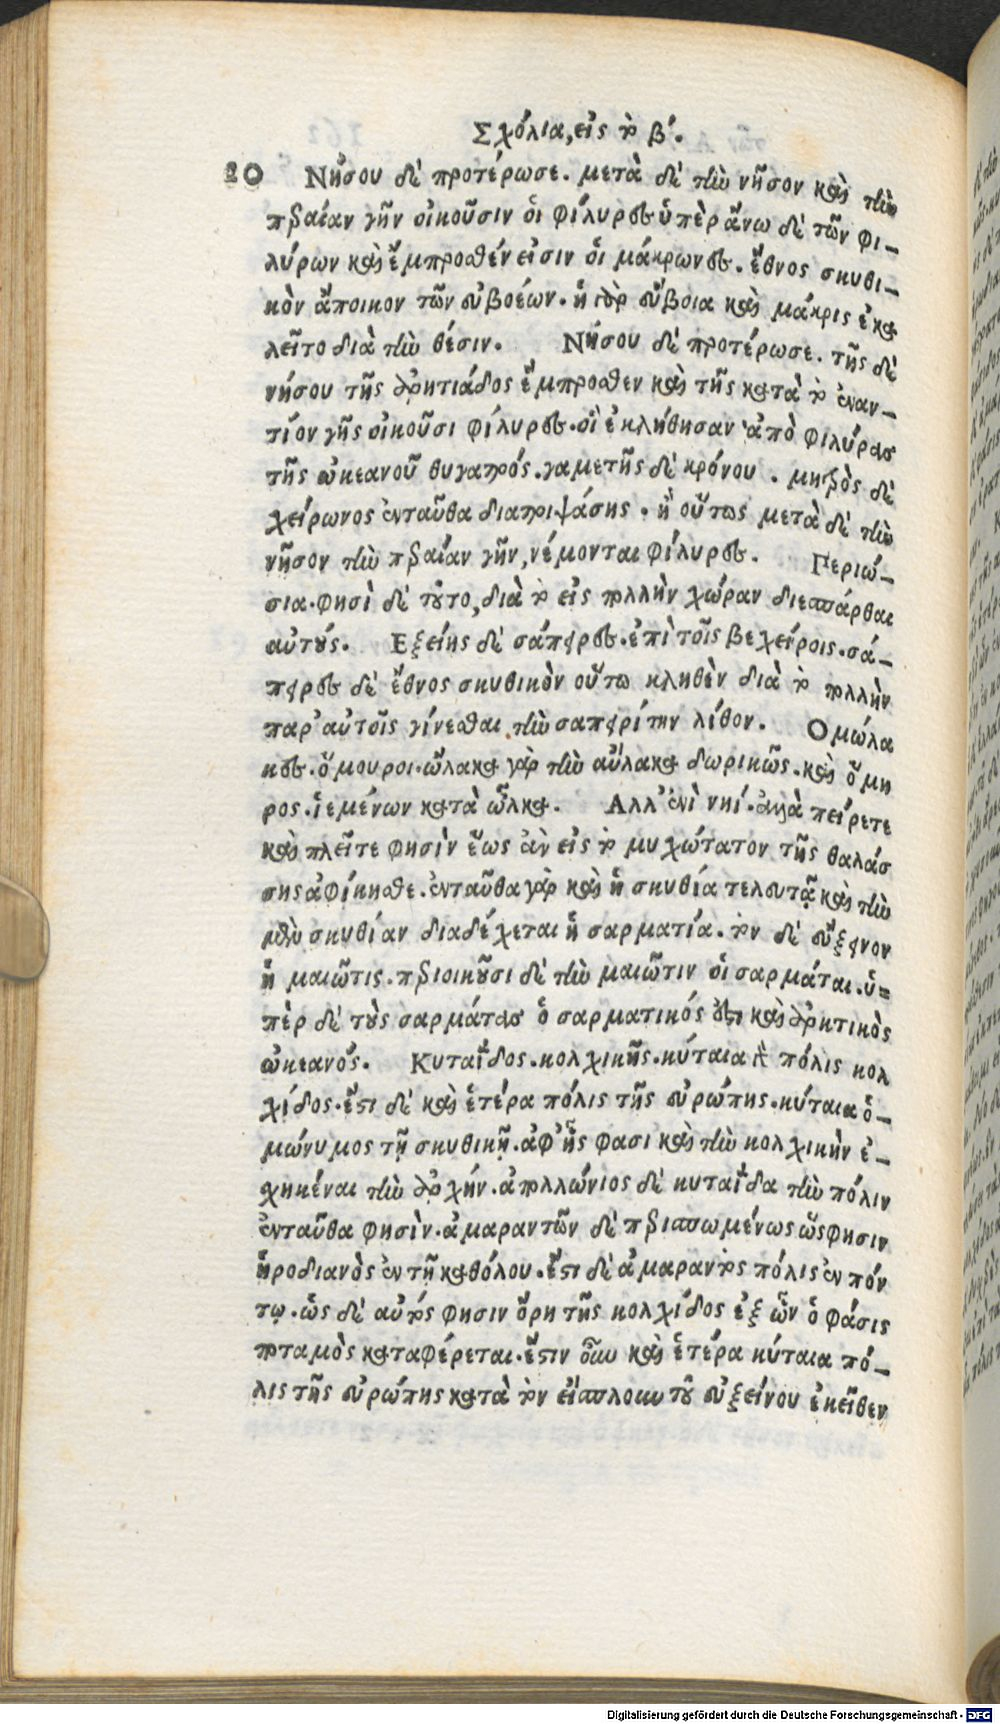 Σχόλια, εἰς τὸ β΄.
20 Νήσου δὲ προτέρωσε. μετὰ δὲ τὴν νῆσον καὶ τὴν
περαίαν γῆν οἰκοῦσιν οἱ φίλυρες ὑπὲρ ἄνω δὲ τῶν φι-
λύρων καὶ ἔμπροσθέν εἰσιν οἱ μάκρωνες. ἔθνος σκυθι-
κὸν ἄποικον τῶν εὐβοέων. ἡ γὰρ εὔβοια καὶ μάκρις ἐκα
λεῖτο διὰ τὴν θέσιν. Νήσου δὲ προτέρωσε. τῆς δὲ
νήσου τῆς ἀρητιάδος ἔμπροσθεν καὶ τῆς κατὰ τὸ ἐναν-
τίον γῆς οἰκοῦσι φίλυρες. οἳ ἐκλήθησαν ἀπὸ φιλύρας
τῆς ὠκεανοῦ θυγατρός. γαμετῆς δὲ κρόνου. μητρὸς δὲ
χείρωνος ἐνταῦθα διατριψάσης. ἢ οὕτως μετὰ δὲ τὴν
νῆσον τὴν περαίαν γῆν, νέμονται φίλυρες. Περιώ-
σια. φησὶ δὲ τοῦτο, διὰ τὸ εἰς πολλὴν χώραν διεσπάρθαι
αὐτούς. Εξείης δὲ σάπειρες. ἐπὶ τοῖς βεχείροις. σά-
πειρες δὲ ἔθνος σκυθικὸν οὕτω κληθὲν διὰ τὸ πολλὴν
παρ' αὐτοῖς γίνεσθαι τὴν σαπειρίτην λίθον. Ομώλα
κες. ὅμουροι. ὦλακα γὰρ τὴν αὔλακα δωρικῶς. καὶ ὅμη
ρος. ἱεμένων κατὰ ὦλκα. Αλλ' ἐνὶ νηί. ἀλλὰ πείρετε
καὶ πλεῖτε φησὶν ἕως ἀν εἰς τὸ μυχώτατον τῆς θαλάσ
σης ἀφίκησθε. ἐνταῦθα γὰρ καὶ ἡ σκυθία τελευτᾷ καὶ τὴν
μὲν σκυθίαν διαδέχεται ἡ σαρματία. τὸν δὲ εὔξεινον
ἡ μαιῶτις. περιοικοῦσι δὲ τὴν μαιῶτιν οἱ σαρμάται. ὑ=
πὲρ δὲ τοὺς σαρμάτας ὁ σαρματικός ἐστι καὶ ἀρητικὸς
ὠκεανός. Κυταΐδος. κολχικῆς. κύταια γὰρ πόλις κολ
χίδος. ἔστι δὲ καὶ ἑτέρα πόλις τῆς εὐρώπης. κύταια ὁ-
μώνυμος τῇ σκυθικῇ. ἀφ' ἧς φασι καὶ τὴν κολχικὴν ἐ-
σχηκέναι τὴν ἀρχήν. ἀπολλώνιος δὲ κυταΐδα τὴν πόλιν
ἐνταῦθα φησὶν. ἀμαραντῶν δὲ περισπωμένως ὥς φησιν
ἡροδιανὸς ἐν τῇ καθόλου. ἔστι δὲ ἀμαραντὸς πόλις ἐν πόν
τῳ. ὡς δὲ αὐτός φησιν ὄρη τῆς κολχίδος ἐξ ὧν ὁ φάσις
ποταμὸς καταφέρεται. ἔστιν οὖν καὶ ἑτέρα κύταια πό-
λις τῆς εὐρώπης κατὰ τὸν εἴσπλουν τοῦ εὐξείνου ἐκεῖθεν
Digitalisierung gefördert durch die Deutsche Forschungsgemeinschaft - DFG